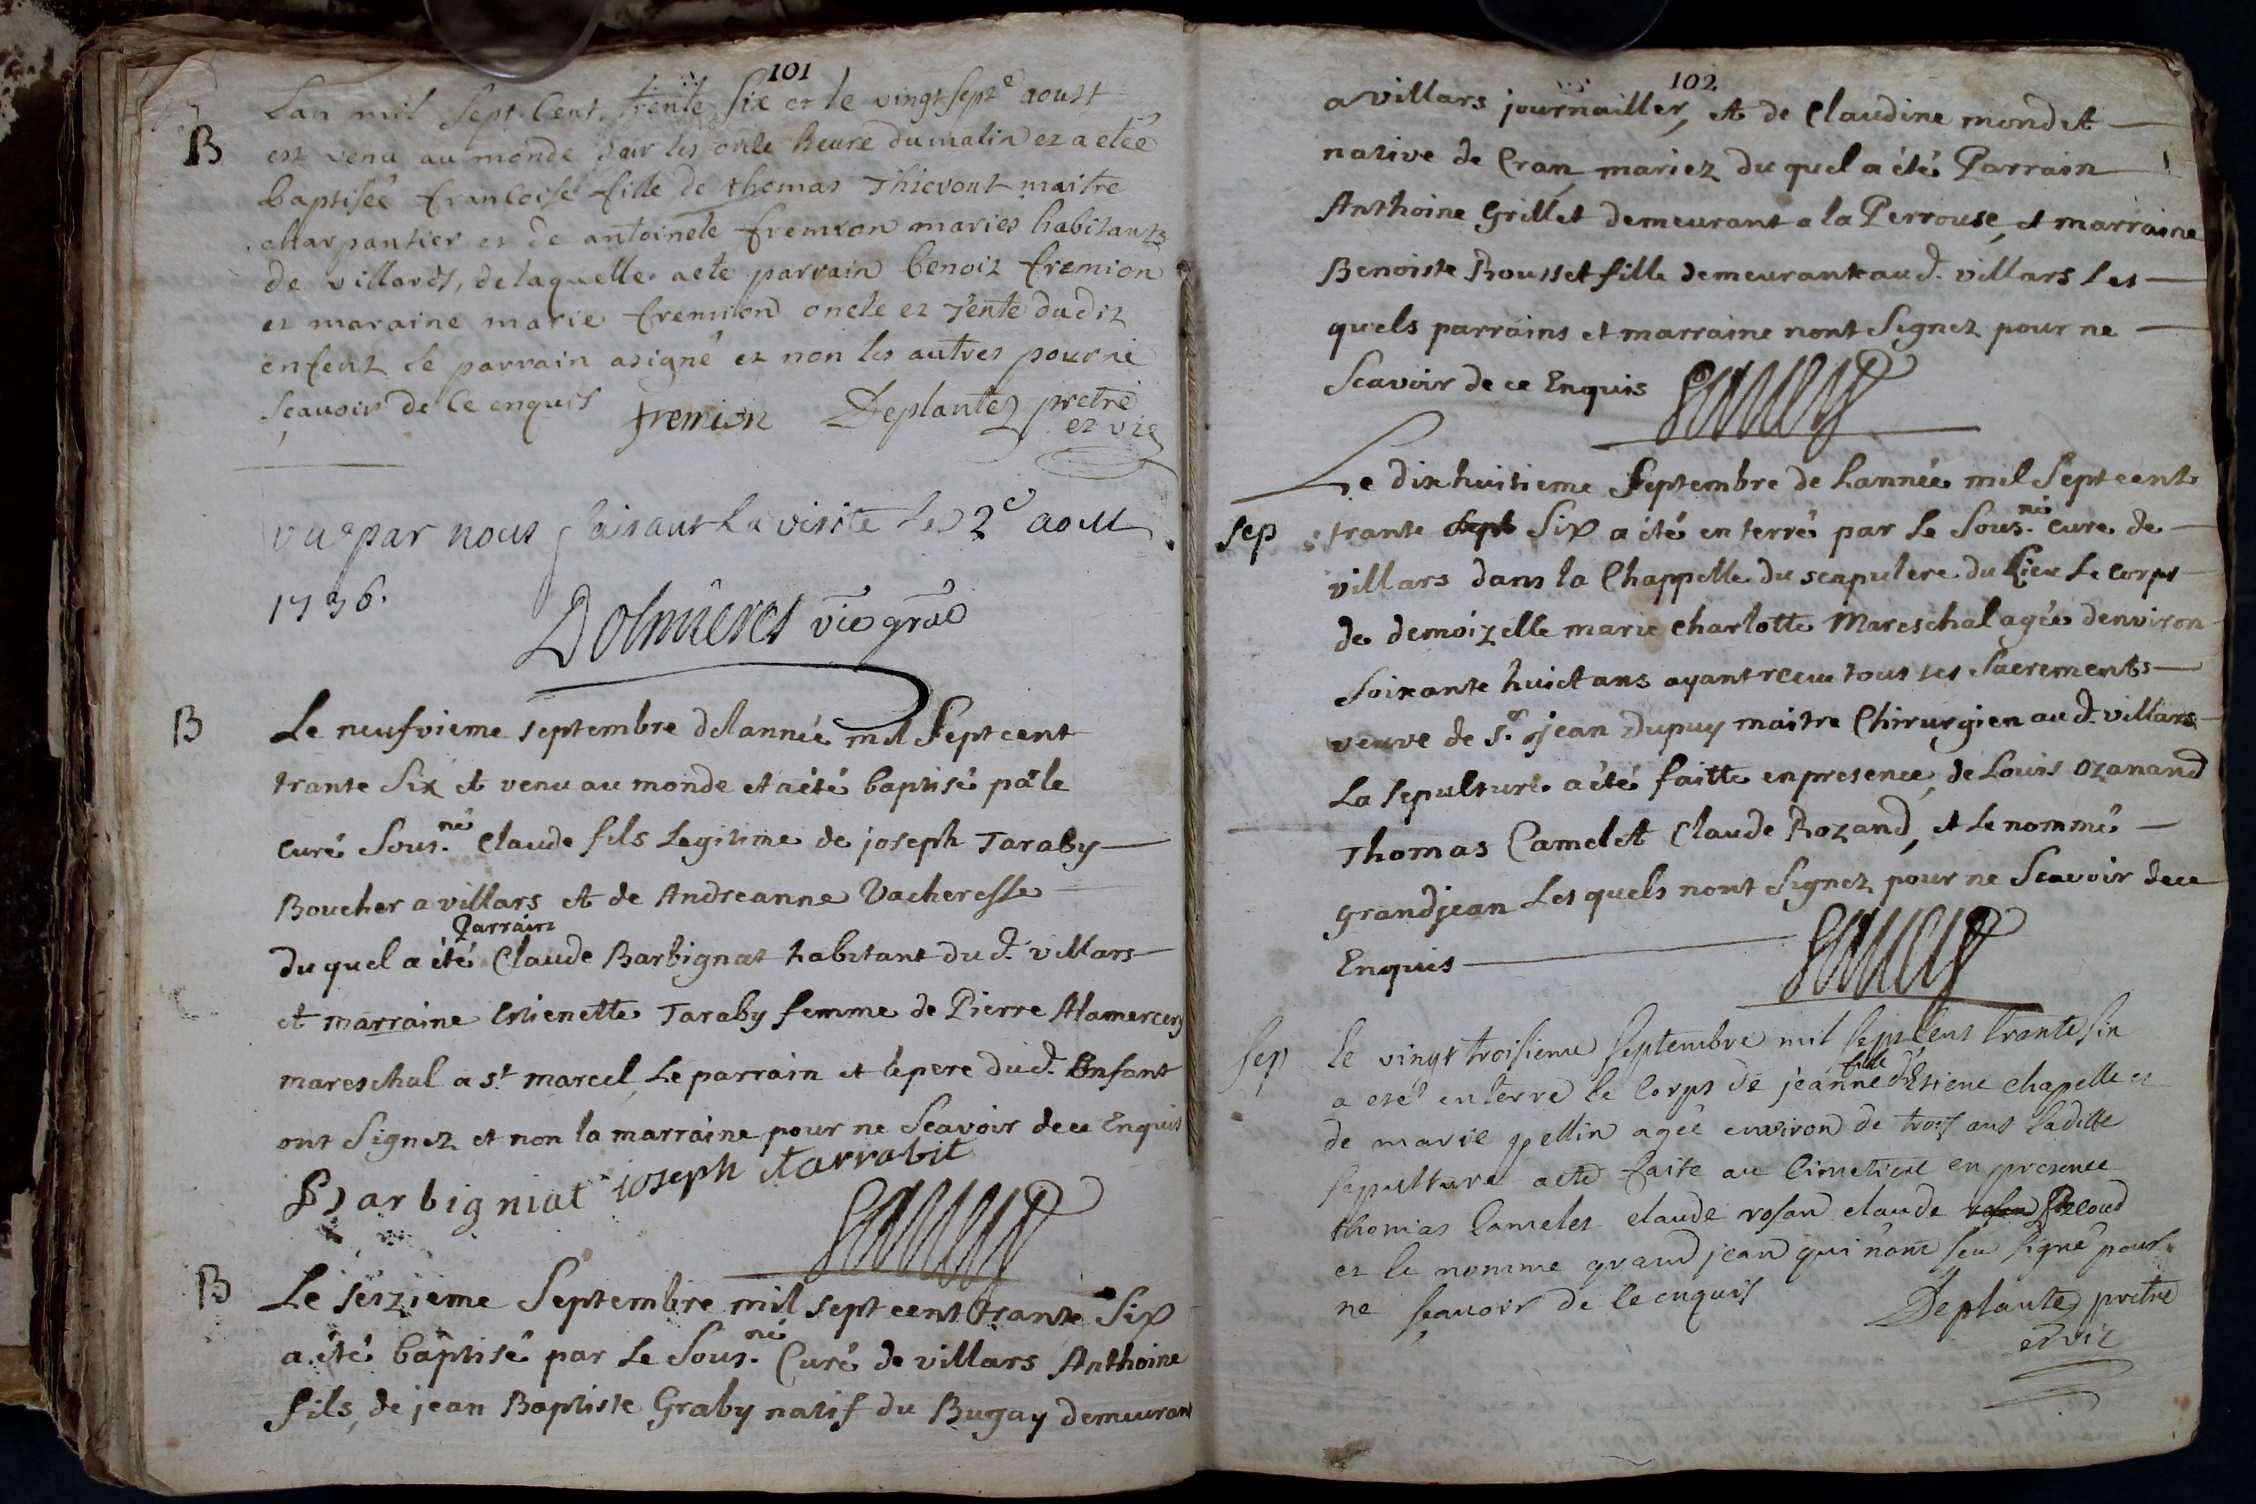 101
Lan mil sept Cent trente six et le vingt sept e aoust
B
est venu au monde sur les onle heure du matin et a etée
baptisée francoise fille de thomas Thievont maitre
charpantier et de antoinete fremion maries habitants
de villards, de laquelle a ete parrain benoit fremion
et maraine marie fremion oncle et tente dudit
enfent le parrain a signé et non les autres pour ne
sçauoir de ce enquis fremion Deplantes pretre
et vic
vu par nous faisant la visite le 2e aout
1736.
Dolmieres vic gral
B
Le neufvieme septembre de lannée mil sept cent
trante six et venu au monde et a été baptisé pa le
curé sous.né Claude fils Legitime de joseph Taraby
Boucher a villars et de Andreanne Vacheresse
Parrain
du quel a été Claude Barbignat habitant du d. villars
et marraine Estienette Taraby femme de Pierre Alamercery
mareschal a st marcel Le parrain et le pere du d. Enfant
ont signez et non la marraine pour ne Scavoir de ce Enquis
Barbigniat joseph tarrabit
B
Le seizieme Septembre mil sept cent trante Six
a été baptisé par Le Sous.né Curé de villars Anthoine
fils, de jean Baptiste Graby natif du Bugay demeurant
102
a villars journailler, et de Claudine mondet
native de Cran mariez du quel a été Parrain
Anthoine Grillet demeurant a la Perrouse, et marraine
Benoiste Rousset fille demeurante au d. villars Les
quels parrains et marraine nont Signez pour ne
Scavoir de ce Enquis
Le dixhuitieme Septembre de Lannée mil Sept cent
sep
trante sept Six a été en terré par Le Sous.né cure de
villars dans la Chappelle du scapulere du Lieu Le corps
de demoizelle marie charlotte Mareschal agée denviron
Soixante huict ans ayant recue tous ses Sacrements
veuve de sr. jean Dupuy maitre Chirurgien au d. villars
La sepulture a été faitte en presence, de Louis Ozanand
Thomas Camelet Claude Rozand, et Le nommé
grandjean Les quels nont Signez pour ne Scavoir de ce
Enquis
sep
le vingt troisieme septembre mil sept Cent trante six
fille
a eté en terre le Corps de jeanne d'Etiene chapelle et
de marie pellin agée environ de trois ans ladille
sepulture a ete faite au Cimetiere en presence
thomas Camelet claude rosan claude Recoud
et le nomme grand jean qui n'ont seu signé pour
ne sçauoir de ce enquis
Deplantes pretre
et vic